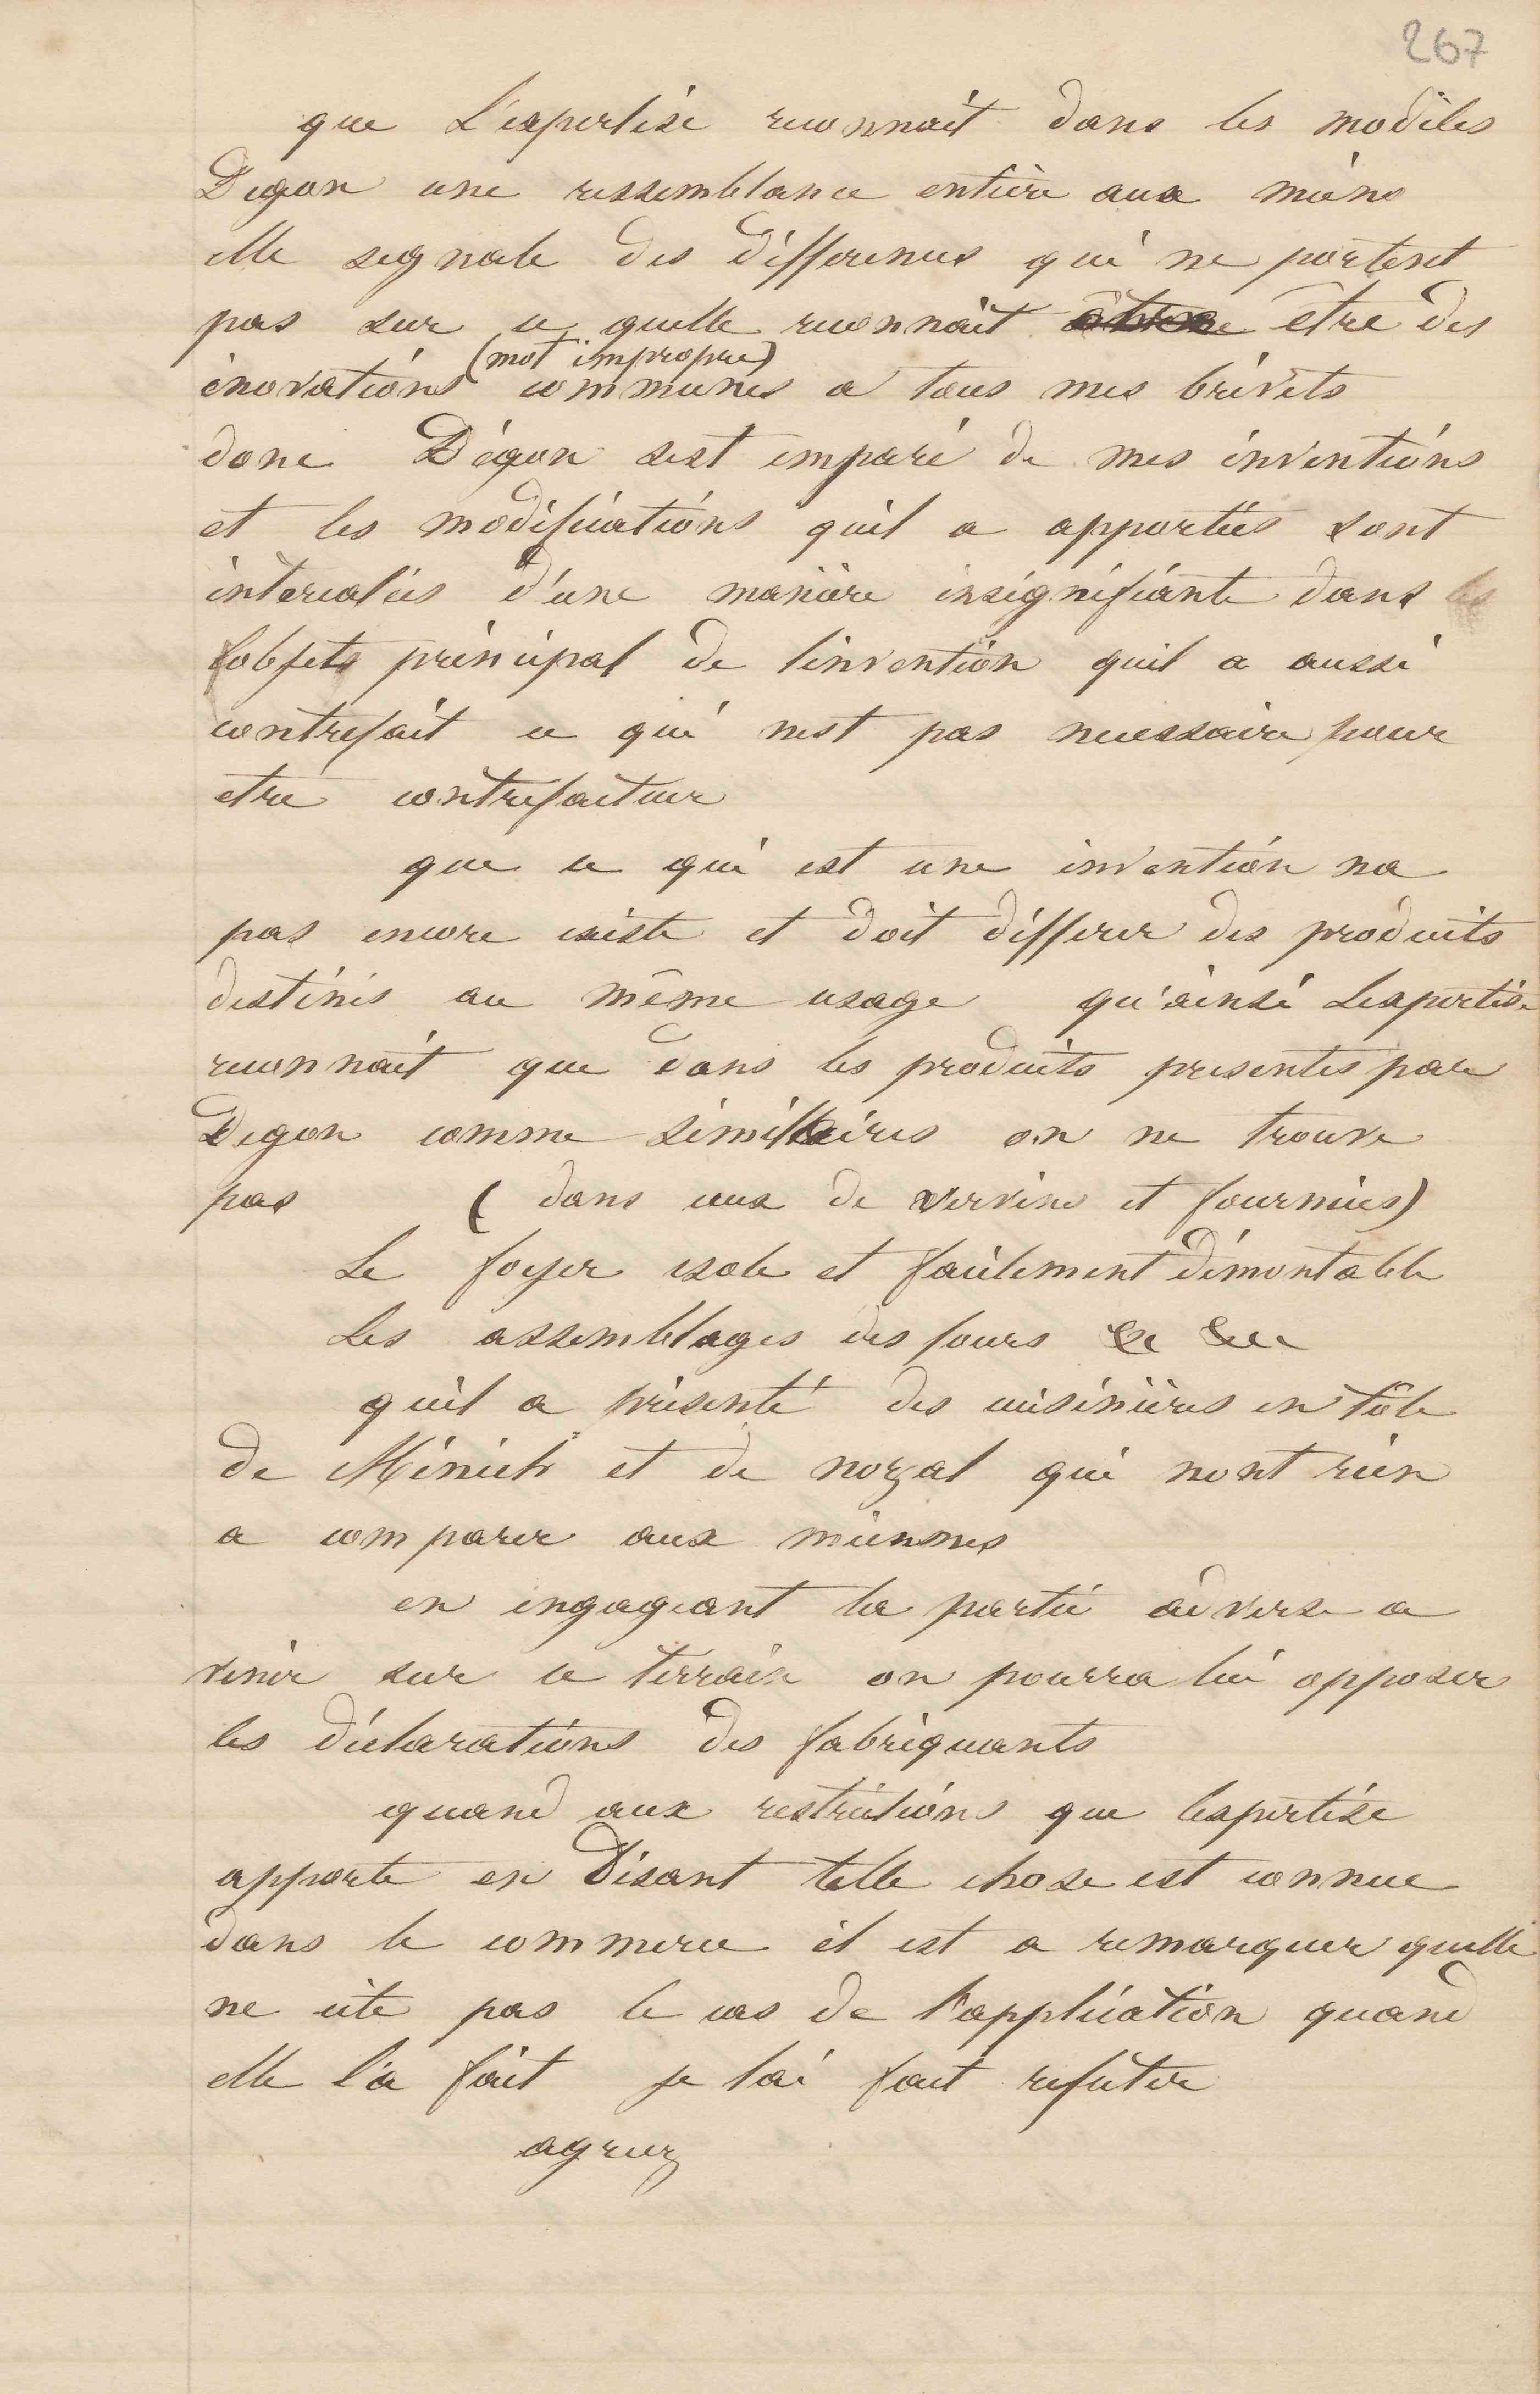 267
que L'expertise reconnait dans les modèles
Degon une ressemblance entière aux miens
elle segnale des différences qui ne portent
pas sur ce quelle reconnait être des
(mot impropre)
inovations communes a tous mes brévets
donc Dégon sest emparé de mes inventions
et les modifications quil a apportées sont
intercalées d'une manière insignifiante dans les
lobjets principal de linvention quil a aussi
contrefait ce qui nest pas necessaire pour
etre contrefacteur
que ce qui est une invention na
pas encore existé et doit différer des produits
destinés au même usage qu'ainsi Lexpertise
reconnait que dans les produits presentés par
Degon comme similaires on ne trouve
pas ( dans ceux de vervins et fourmies)
Le foyer isolé et facilement démontable
Les assemblages des fours &c &c
quil a présenté des cuisinières en tôle
de Ménich et de nozal qui nont rien
a comparer aux miennes
en engageant la partie adverse a
venir sur ce terrain on pourra lui opposer
les déclarations des fabriquants
quand aux restrictions que lexpertise
apporte en Disant telle chose est connue
dans le commerce il est a remarquer quelle
ne cite pas le cas de l'application quand
elle l'a fait je lai fait refuter
agreez